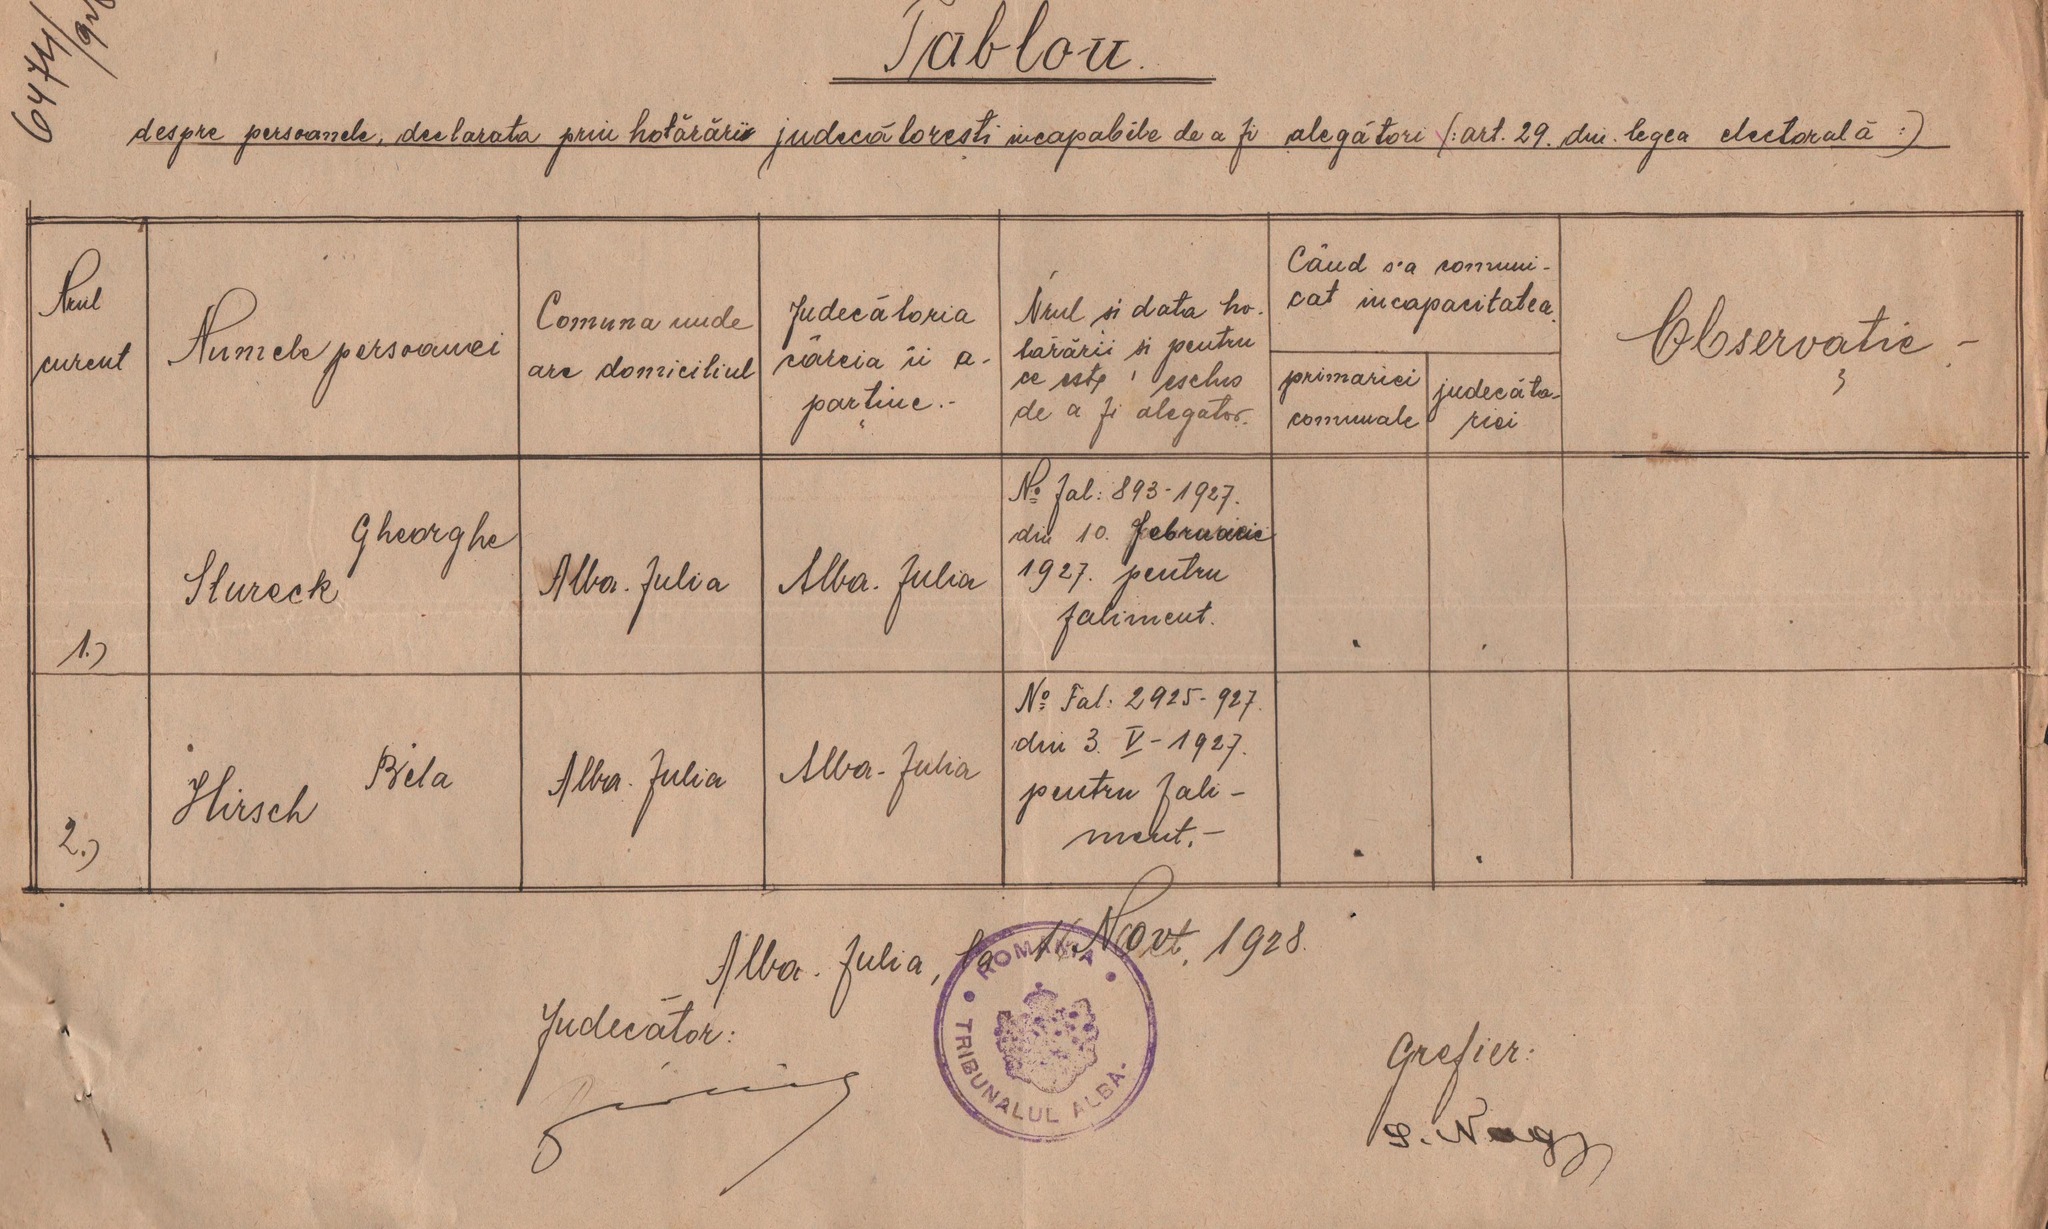 6474/
Tablou.
despre persoanele, declarata prin hotărârii judecătoresti incapabile de a fi alegători (: art. 29. din legea electorală :)
Nrul
curent
Numele persoanei
Comuna unde
are domiciliul
Judecătoria
căreia îi a-
parține.-
Nrul si data ho-
tărârii si pentru
ce este esclus
de a fi alegator.
Când s-a comuni-
cat incapacitatea.
primariei
comunale
judecăto-
riei
Observație -
1.)
Gheorghe
Stureck
Alba. Julia
Alba. Julia
No fal: 893-1927.
din 10. Februarie
1927. pentru
faliment.
2.)
Béla
Hirsch
Alba. Julia
Alba- Julia
No Fal: 2925-927.
din 3. V-1927.
pentru fali-
ment.-
Alba. Julia, la 1 Novt. 1928.
Judecător:
ROMANIA
TRIBUNALUL ALBA-
Grefier:
S. Nagy